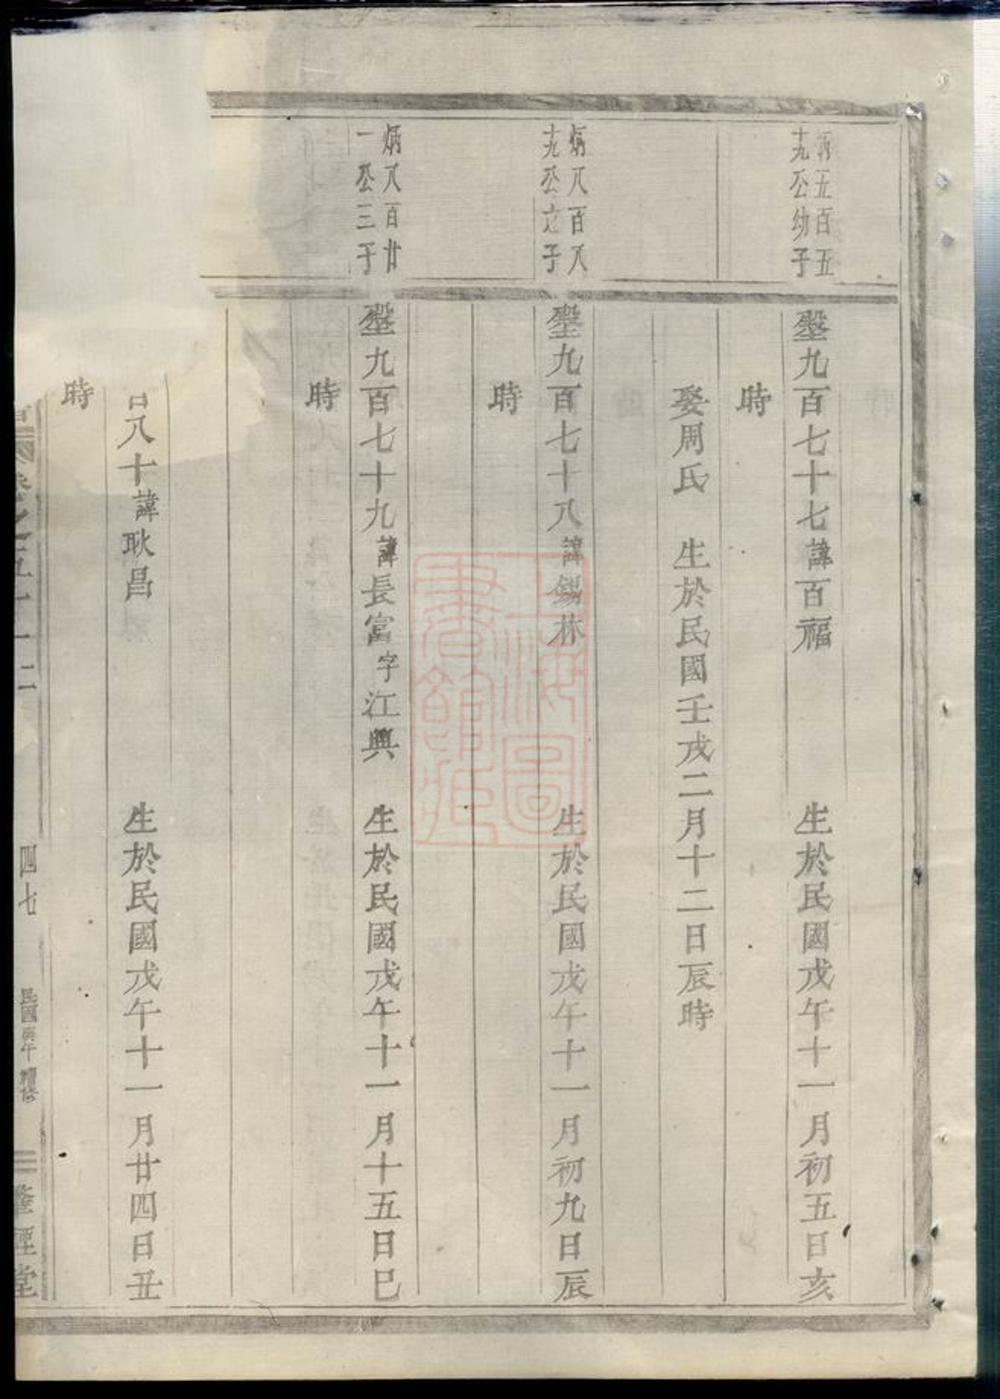 五百五
十九公幼子
壑九百七十七諱百福 生於民國戊午十一月初五日亥
時
娶周氏 生於民國壬戌二月十二日辰時
炳八百八
十九公之子
壑九百七十八諱錫林 生於民國戊午十一月初九日辰
時
炳八百廿
一公三子
壑九百七十九諱長富字江興 生於民國戊午十一月十五日巳
時
八十諱耿昌 生於民國戊午十一月廿四日丑
時
卷之五十二
四七
民國 年續修
堂
上海圖書館藏